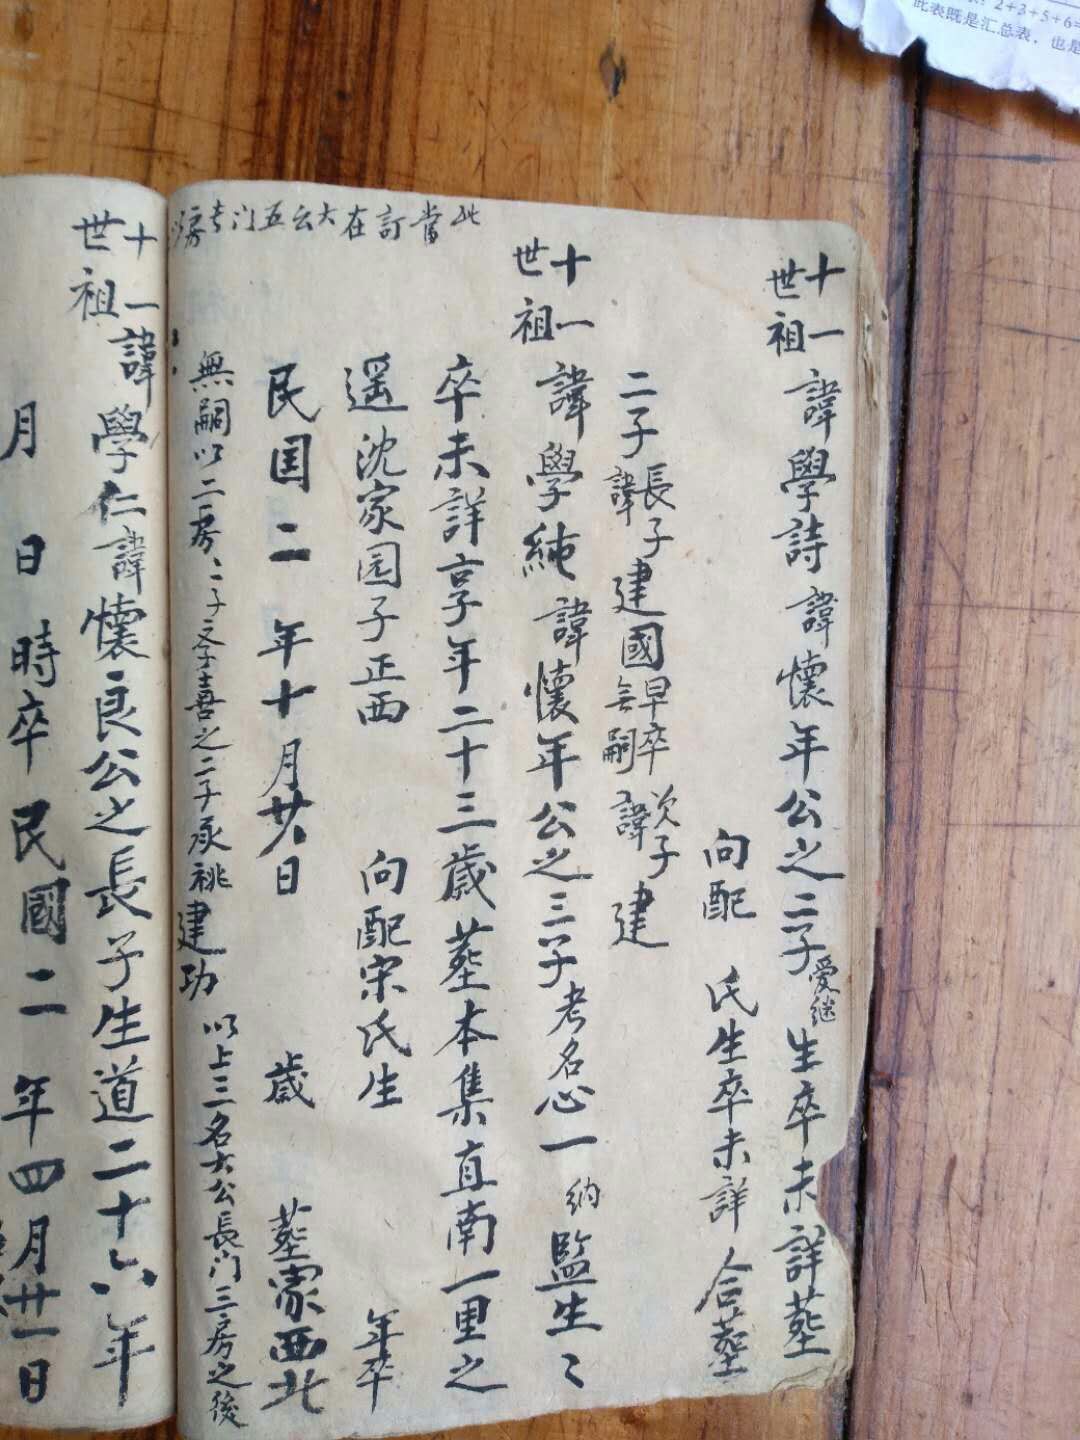 此當訂在大公五门
十一世祖諱學詩諱懷年公之二子受继生卒未詳塟
向配 氏生卒未詳合塟
二子長子諱建國早卒無嗣次子諱建
十一世祖諱學純諱懷年公之三子考名心一納監生〻
卒未詳享年二十三歲塟本集直南一里之
遥沈家园子正西 向配宋氏生 年卒
民国二年十月廿八日 歲 塟窩西北
無嗣以二房二子喜之二子承祧建功 以上三名大公長门三房之後
十一世祖諱學仁諱懷良公之長子生道二十六年
月 日時卒民國二年四月廿一日
2+3+5+6=
此表既是汇总表，也是